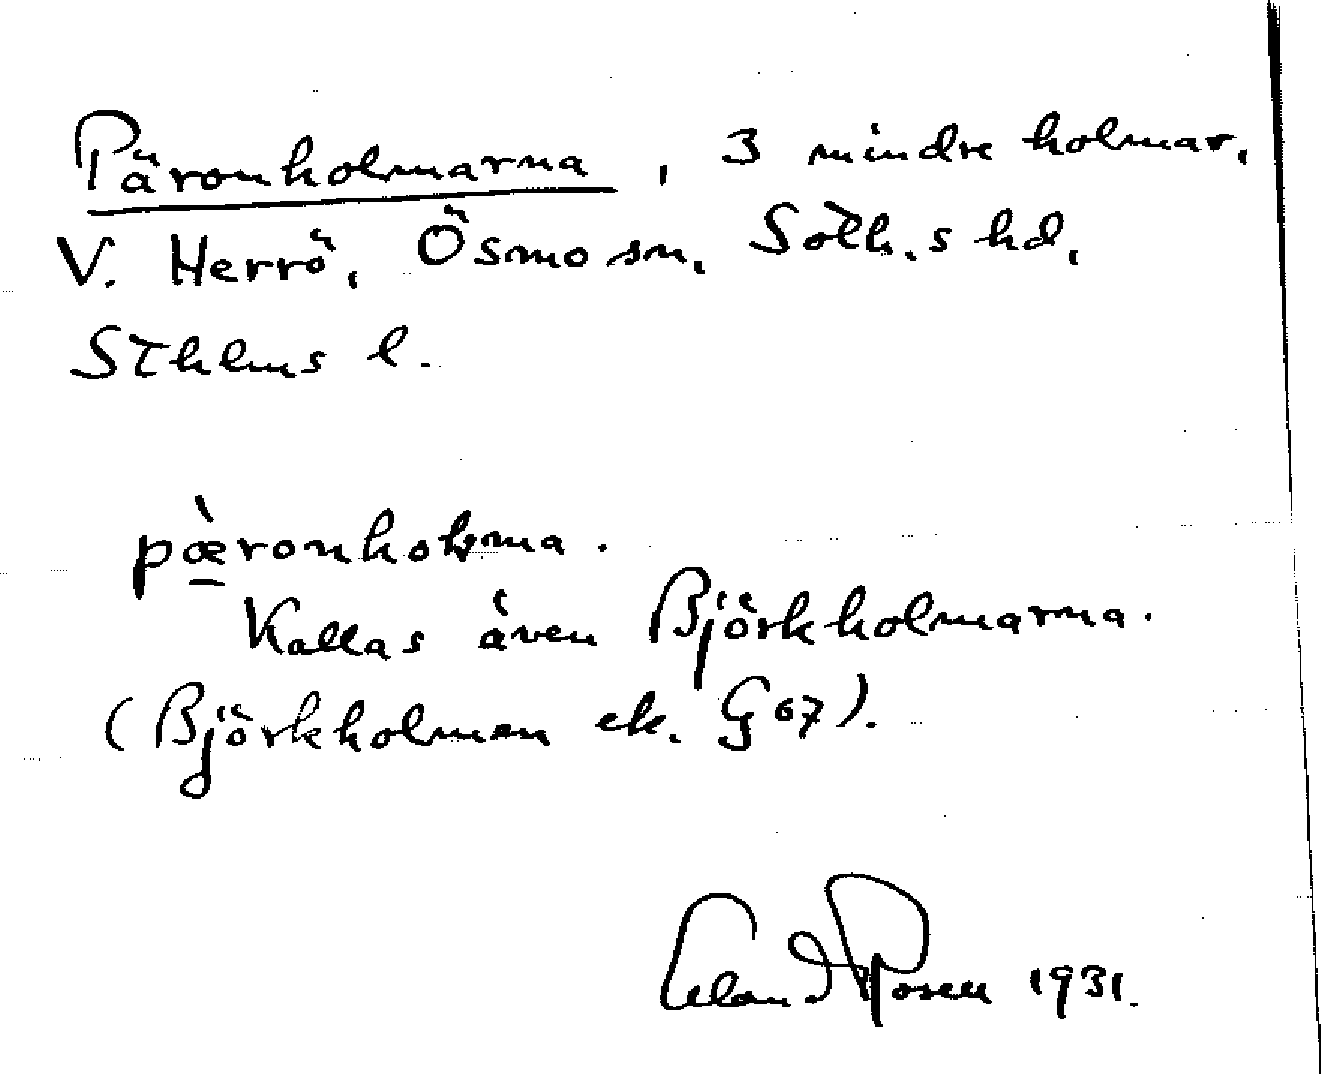 Päronholmarna, 3 mindre holmar,
V. Herrö, Ösmo sn, Soth.s hd,
Sthlms l.
pæ̀ronholma.
Kallas även Björkholmarna.
(Björkholmen ek. G 67).
Rosen 1931.